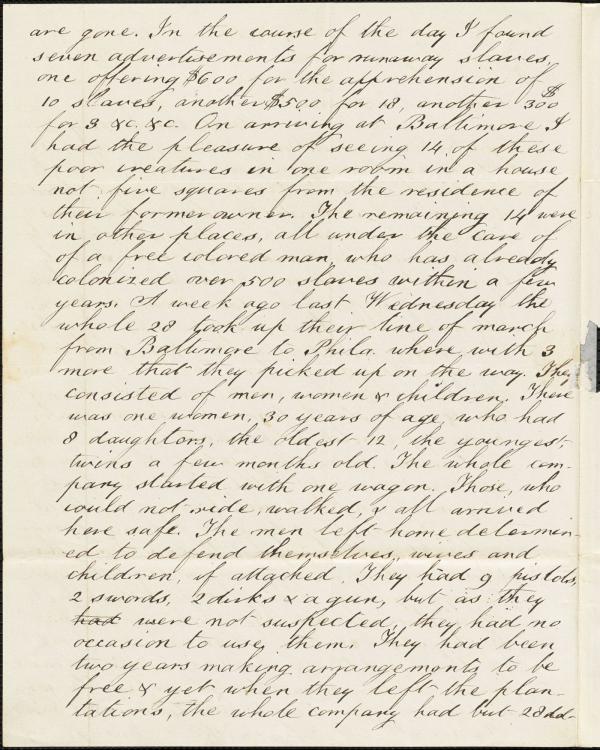 are gone. In the course of the day I found
seven advertisements for runaway slaves,
one offering $600 for the apprehension of
10 slaves, another $500 for 18, another $300
for 3 &c. &c. On arriving at Baltimore I
had the pleasure of seeing 14 of these
poor creatures in one room in a house
not five squares from the residence of
their former owner. The remaining 14 were
in other places, all under the care of
of a free colored man, who has already
colonized over 500 slaves within a few
years. A week ago last Wednesday the
whole 28 took up their line of march
from Baltimore to Phila. where with 3
more that they picked up on the way. They
consisted of men, women & children. There
was one women, 30 years of age, who had
8 daughters, the oldest 12, the youngest,
twins a few months old. The whole com-
pany started with one wagon. Those, who
could not ride, walked, & all arrived
here safe. The men left home determin-
ed to defend themselves, wives and
children, if attacked. They had 9 pistols,
2 swords, 2 dirks & a gun, but as they
had were not suspected, they had no
occasion to use them. They had been
two years making arrangements to be
free & yet when they left the plan-
tations, the whole company had but 28 dol-